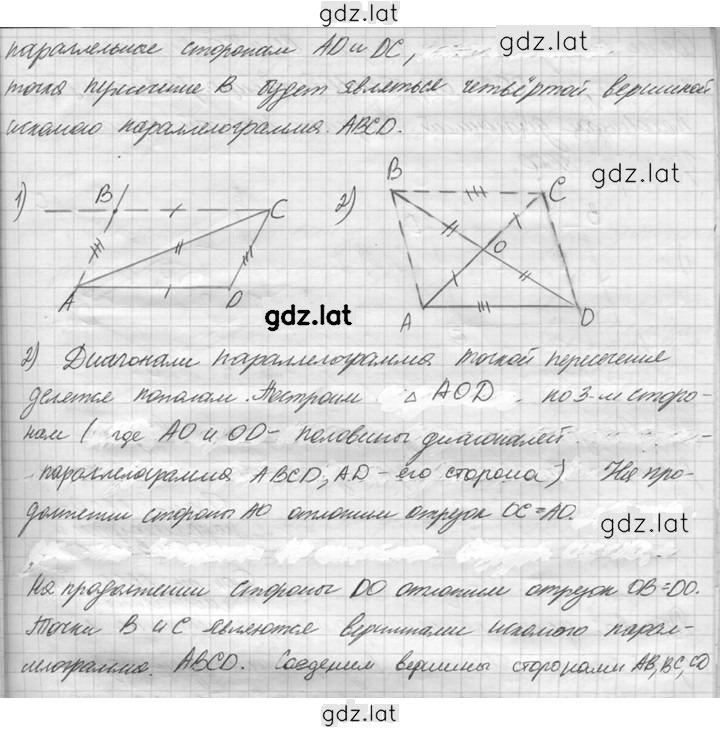 gdz.lat
параллельные сторонам AD и DC,
gdz.lat
точка пересечение B будет являться четвёртой вершиной
искомого параллелограмма. ABCD.
gdz.lat
1) B C A D
2) B C O A D
gdz.lat
2) Диагонали параллелограмма точкой пересечение
делятся пополам. Построим △ AOD по 3-м сторо-
нам ( где AO и OD - половины диагоналей
параллелограмма ABCD, AD - его сторона) На про-
должении стороны AO отложим отрезок OC = AO.
gdz.lat
На продолжении стороны DO отложим отрезок OB = DO.
Точки B и C являются вершинами искомого парал-
лелограмма. ABCD. Соединим вершины сторонами AB, BC, CD
gdz.lat